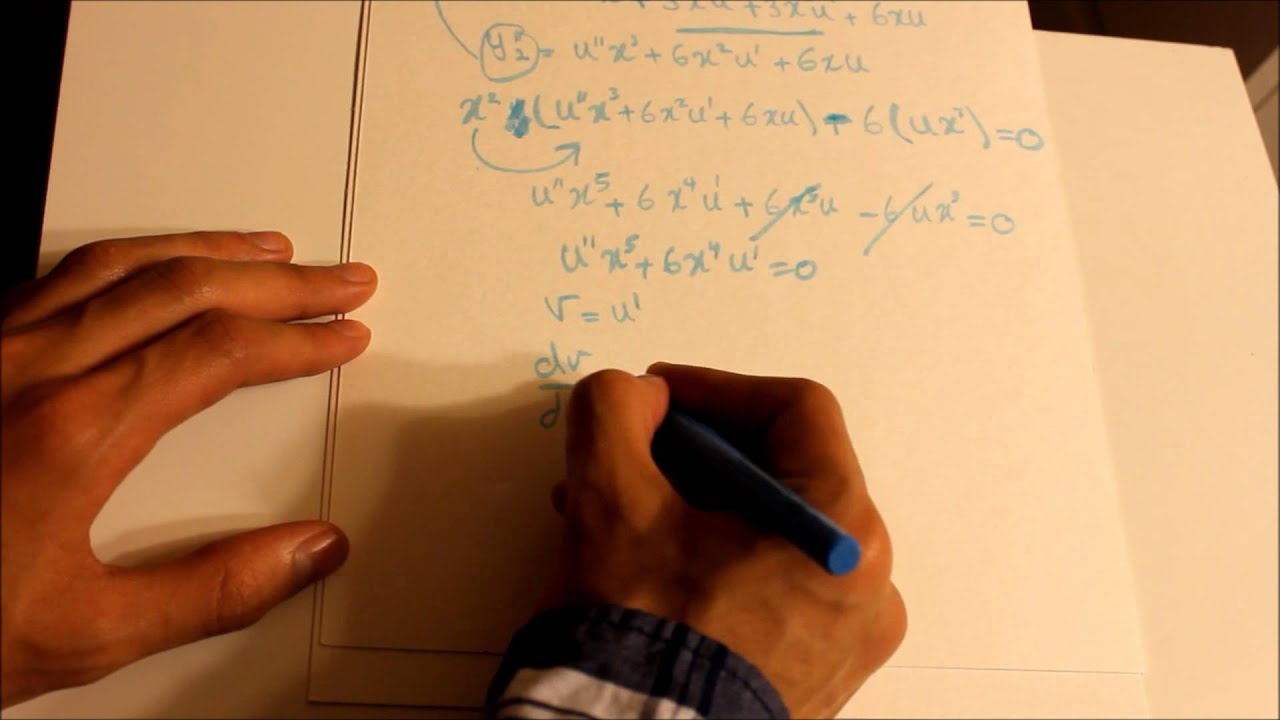 + 3xu' + 3xu' + 6xu
y₂'' = u''x³ + 6x²u' + 6xu
x² (u''x³ + 6x²u' + 6xu) - 6(ux³) = 0
u''x⁵ + 6x⁴u' + 6x³u - 6ux³ = 0
u''x⁵ + 6x⁴u' = 0
v = u'
dv
d